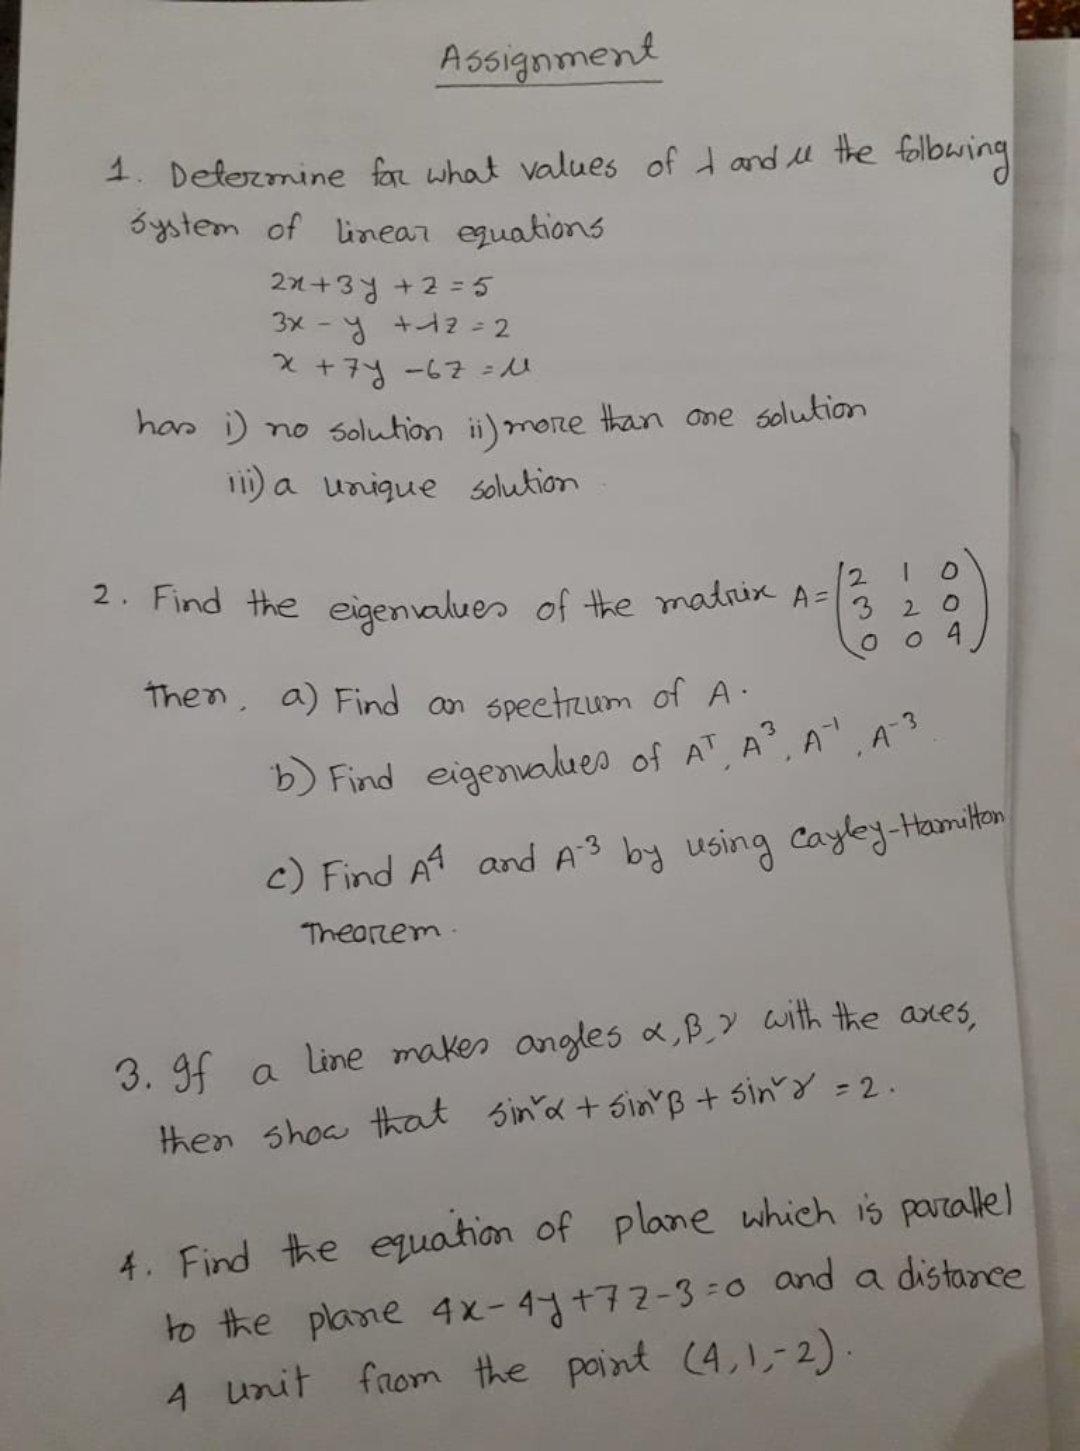 Assignment
1. Determine for what values of λ and μ the following
system of linear equations
2x+3y+z=5
3x-y+λz=2
x+7y-6z=μ
has i) no solution ii) more than one solution
iii) a unique solution
2. Find the eigenvalues of the matrix A=(2 1 0
3 2 0
0 0 4)
Then, a) Find an spectrum of A.
b) Find eigenvalues of Aᵀ, A³, A⁻¹, A⁻³
c) Find A⁴ and A⁻³ by using Cayley-Hamilton
Theorem.
3. If a line makes angles α, β, γ with the axes,
then show that sin²α + sin²β + sin²γ = 2.
4. Find the equation of plane which is parallel
to the plane 4x-4y+7z-3=0 and a distance
4 unit from the point (4,1,-2).